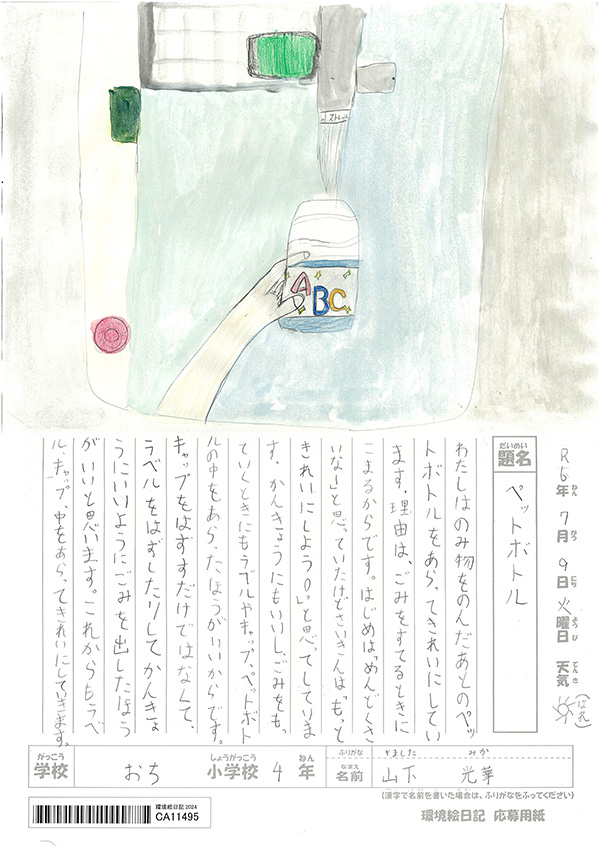 ストレート
ABC
R6年 7月 9日 火曜日 天気 (はれ)
ねん がつ にち ようび てんき
だいめい
題名 ペットボトル
わたしはのみ物をのんだあとのペッ
トボトルをあらってきれいにしてい
ます。理由は、ごみをすてるときに
こまるからです。はじめは「めんどくさ
いな〜」と思っていたけどさいきんは「もっと
きれいにしよう!」と思ってしていま
す。かんきょうにもいいし、ごみをもっ
ていくときにもラブルやキャップ、ペットボト
ルの中をあらったほうがいいからです。
キャップをはずすだけではなくて、
ラベルをはずしたりしてかんきょ
うにいいようにごみを出したほう
がいいと思います。これからもラベ
ル、キャップ、中をあらってきれいにしていきます。
がっこう しょうがっこう ねん
学校 おち 小学校 4年
ふりがな やました みか
なまえ
名前 山下 光華
(漢字で名前を書いた場合は、ふりがなをふってください)
環境絵日記 2024
CA11495
環境絵日記 応募用紙